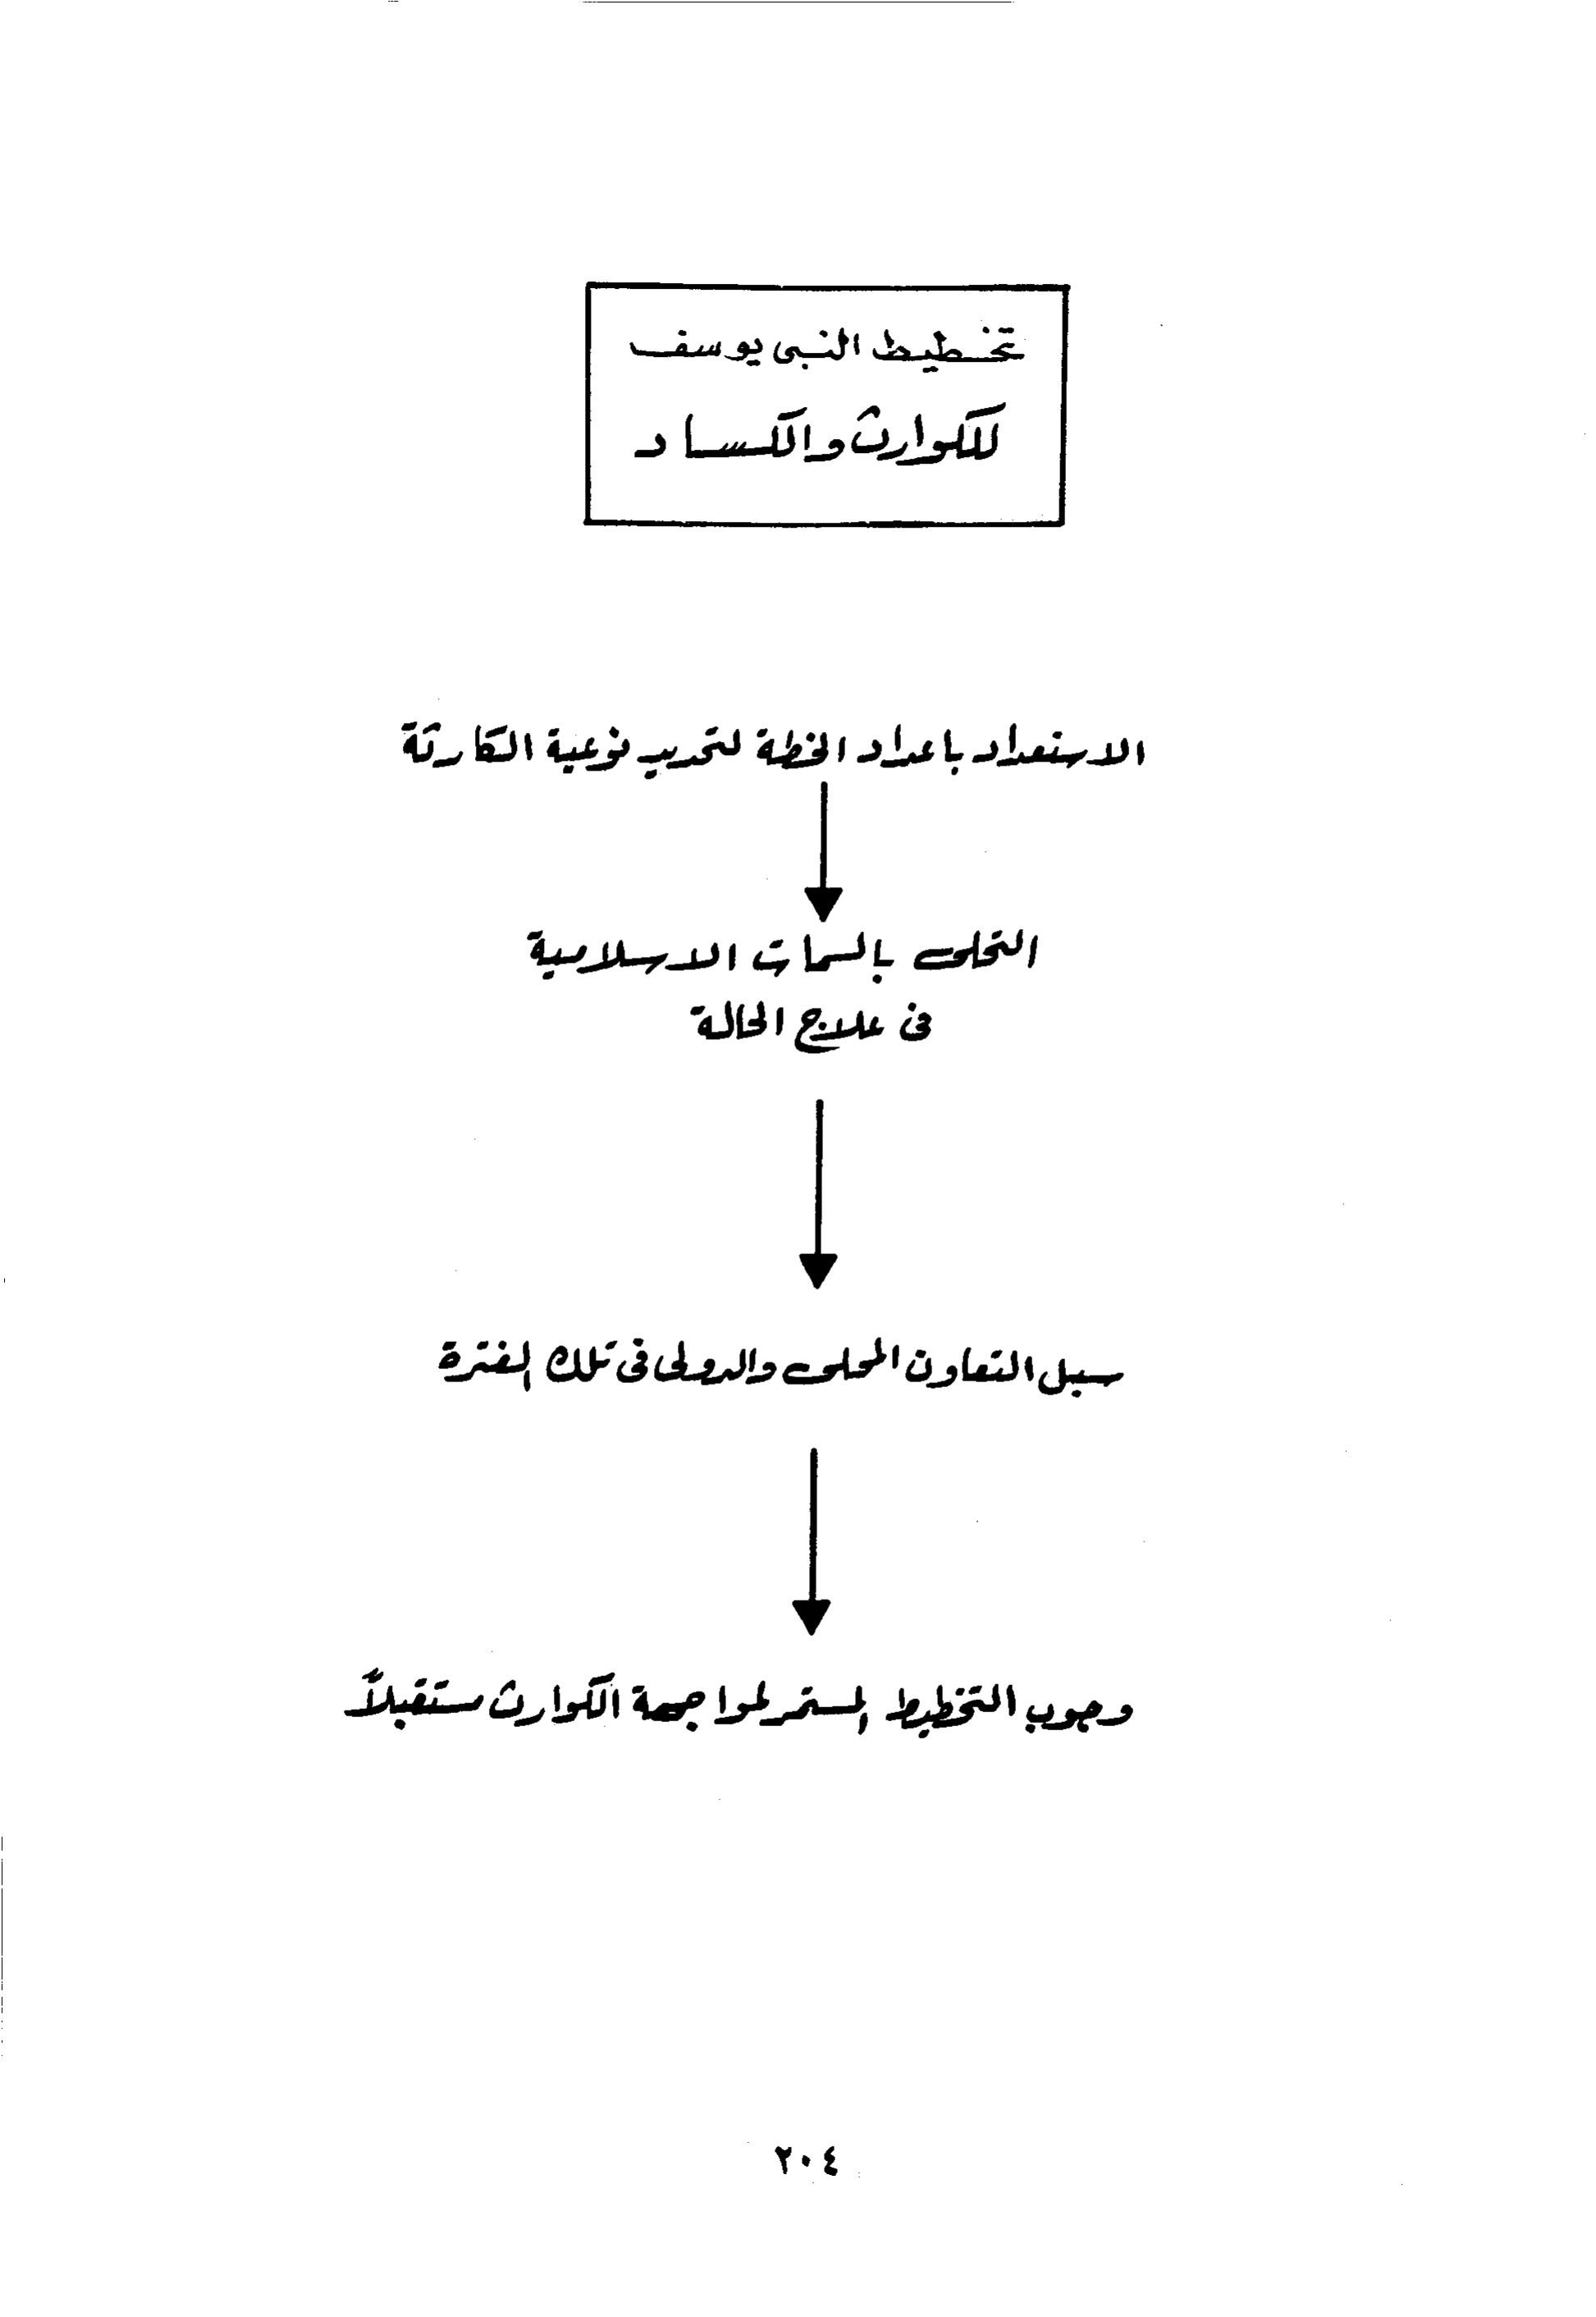 تخطيط النبى يوسف
للكوارث والكساد
الاستعداد باعداد الخطة لتحديد نوعية الكارثة
التحلى بالسمات الاسلامية
فى علاج الحالة
سبل التعاون المحلى والدولى فى تلك الفترة
وجوب التخطيط المستمر لمواجهة الكوارث مستقبلاً
٢٠٤